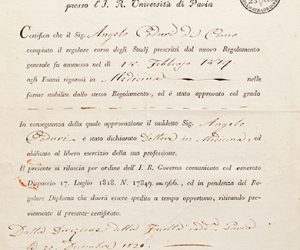 presso l'I. R. Università di Pavia
Certifico che il Sig. Angelo
compiuto il regolare corso degli Studj prescritti dal nuovo Regolamento
generale fu ammesso nel dì 15 Febbrajo
agli Esami rigorosi in Medicina nelle
forme stabilite dallo stesso Regolamento, ed è stato approvato col grado
In conseguenza della quale approvazione il suddetto Sig. Angelo
è stato dichiarato Dottore in Medicina, ed
abilitato al libero esercizio della sua professione.
Il presente si rilascia per ordine dell' I. R. Governo comunicato col venerato
Dispaccio 17. Luglio 1818. N. 17849. 966., ed in pendenza del Re-
golare Diploma che dovrà essere spedito a tempo opportuno, ritirando previa-
mente il presente certificato.
Dalla Direzione della Facoltà